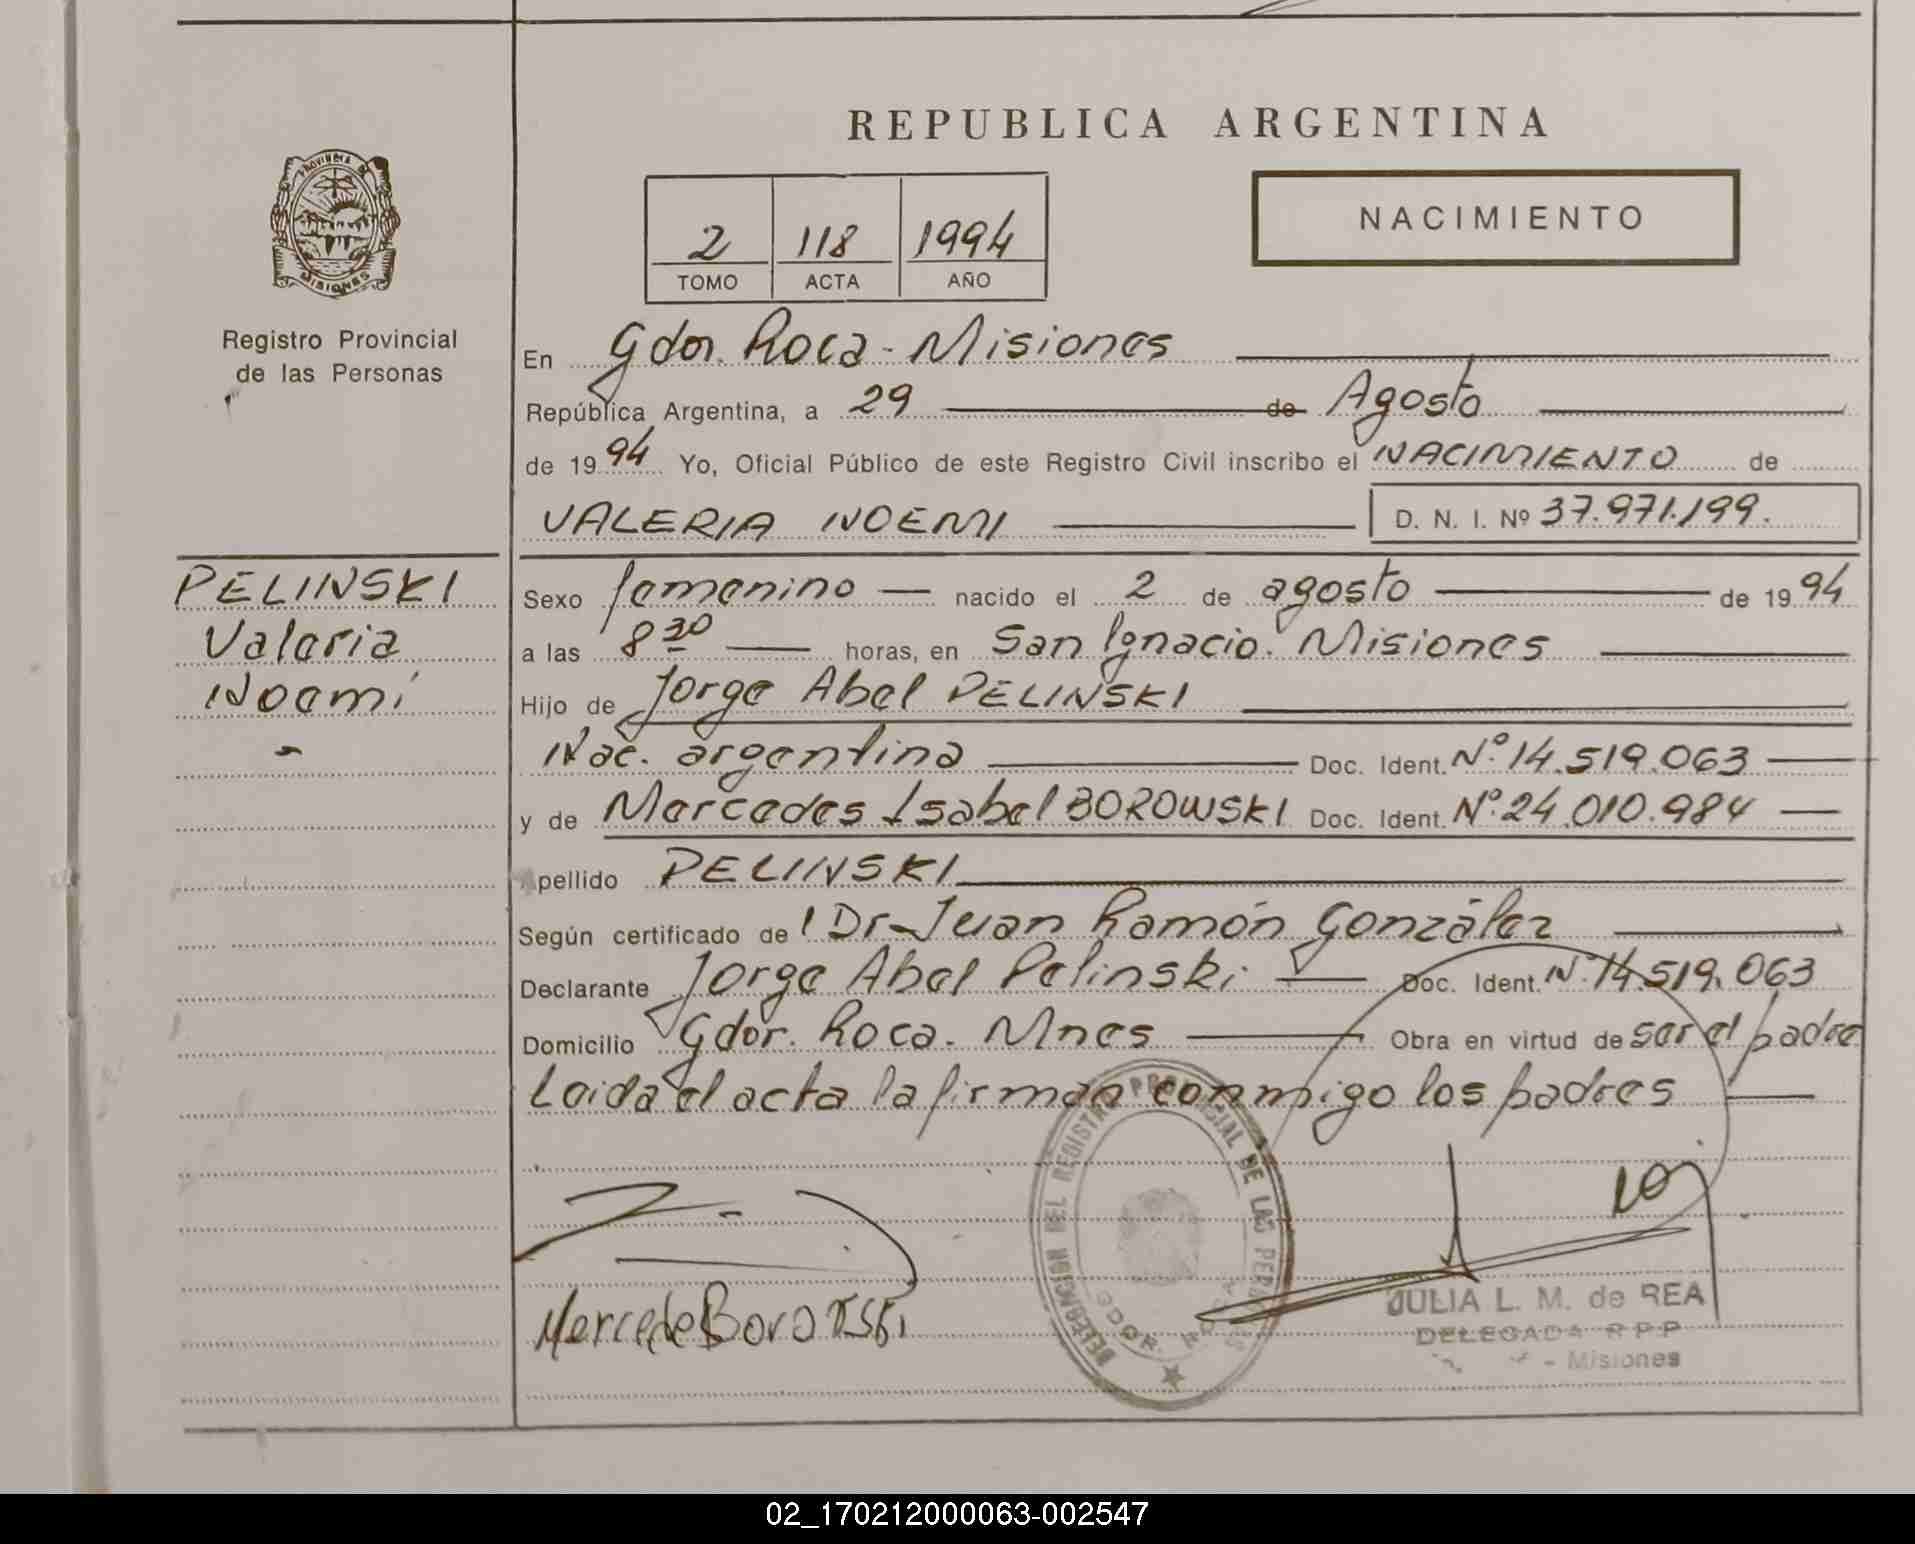 REPUBLICA ARGENTINA
PROVINCIA DE
MISIONES
Registro Provincial
de las Personas
2 118 1994
TOMO ACTA AÑO
NACIMIENTO
En Gdor. Roca - Misiones
República Argentina, a 29 de Agosto
de 1994 Yo, Oficial Público de este Registro Civil inscribo el NACIMIENTO de
VALERIA NOEMI D. N. I. Nº 37.971.199.
PELINSKI
Valeria
Noemí
Sexo femenino nacido el 2 de agosto de 1994
a las 8 30 horas, en San Ignacio. Misiones
Hijo de Jorge Abel PELINSKI
Nac. argentina Doc. Ident. Nº 14.519.063
y de Mercedes Isabel BOROWSKI Doc. Ident. Nº 24.010.984
Apellido PELINSKI
Según certificado del Dr. Juan Ramón González
Declarante Jorge Abel Pelinski Doc. Ident. Nº 14.519.063
Domicilio Gdor. Roca. Mnes Obra en virtud de ser el padre
Leida el acta la firman conmigo los padres
DELEGACION DEL REGISTRO PROVINCIAL DE LAS PERSONAS
GDOR. ROCA
Mercede Borowski
JULIA L. M. de REA
DELEGADA R P P
- Misiones
02_170212000063-002547